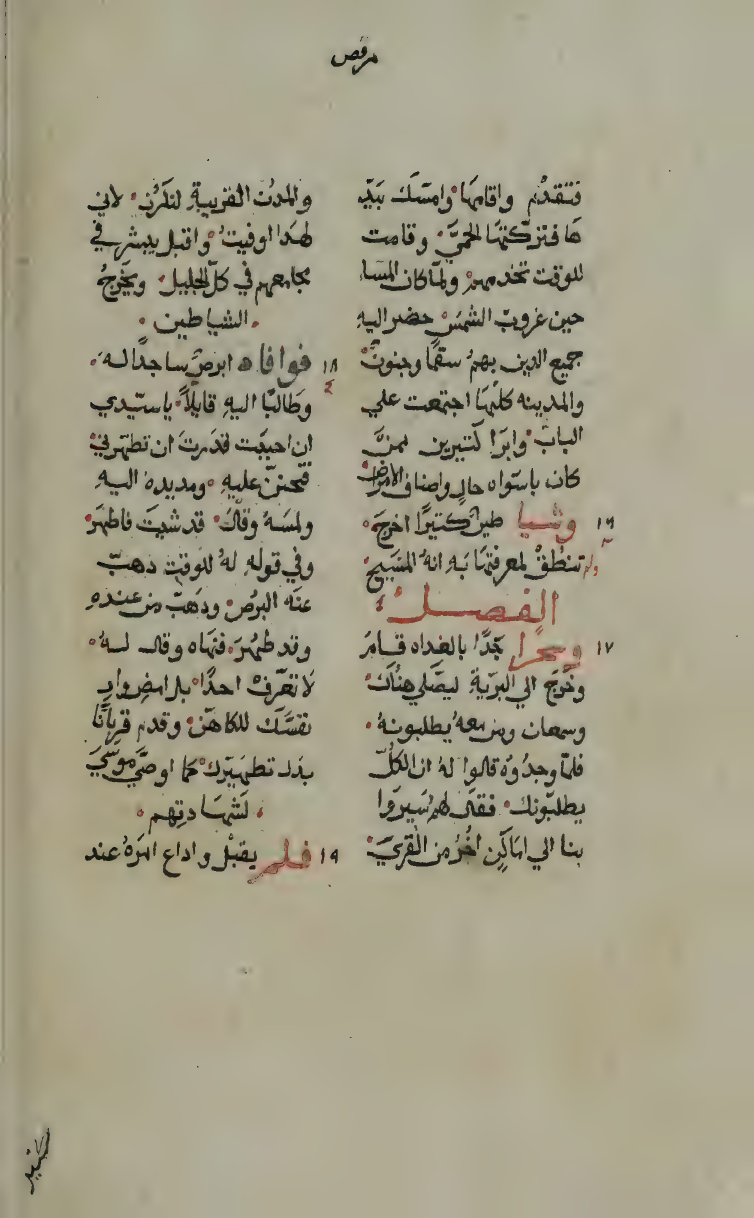 مرقص
فتقدم واقامها وامسك بيد
ها فتركتها الحمى وقامت
للوقت تخدمهم ولما كان المسا
حين غروب الشمس حضر اليه
جميع الدين بهم سقما وجنون
والمدينه كلها اجتمعت علي
الباب وابرا كتيرين ممن
كان باسواه حال واصناف الامراض
١٦ وشيا طين كتيرا اخرج
ولم تنطق لمعرفتها به انه المسيح
الفصل ٤
١٧ وسحرا جدا بالغداه قام
وخرج الي البرية ليصلي هناك
وسمعان ومن معه يطلبونه
فلما وجدوه قالوا له ان الكل
يطلبونك فقال لهم سيروا
بنا الي اماكن اخر من القرى
والمدن القريبة لنكرز لاني
لهدا اوفيت واقبل يبشر في
مجامعهم في كل الجليل ويخرج
الشياطين
١٨ ٤ فوافاه ابرص ساجدا له
وطالبا اليه قايلا ياسيدي
ان احببت قدرت ان تطهرني
فتحنن عليه ومد يده اليه
ولمسه وقال قد شيت فاطهر
وفي قوله له للوقت دهب
عنه البرص ودهب من عنده
وقد طهر فنهاه وقال له
لا تعرف احدا بل امض وار
نفسك للكاهن وقدم قربانا
بدل تطهيرك كما اوصى موسى
لشهادتهم
١٩ فلم يقبل واداع امره عند